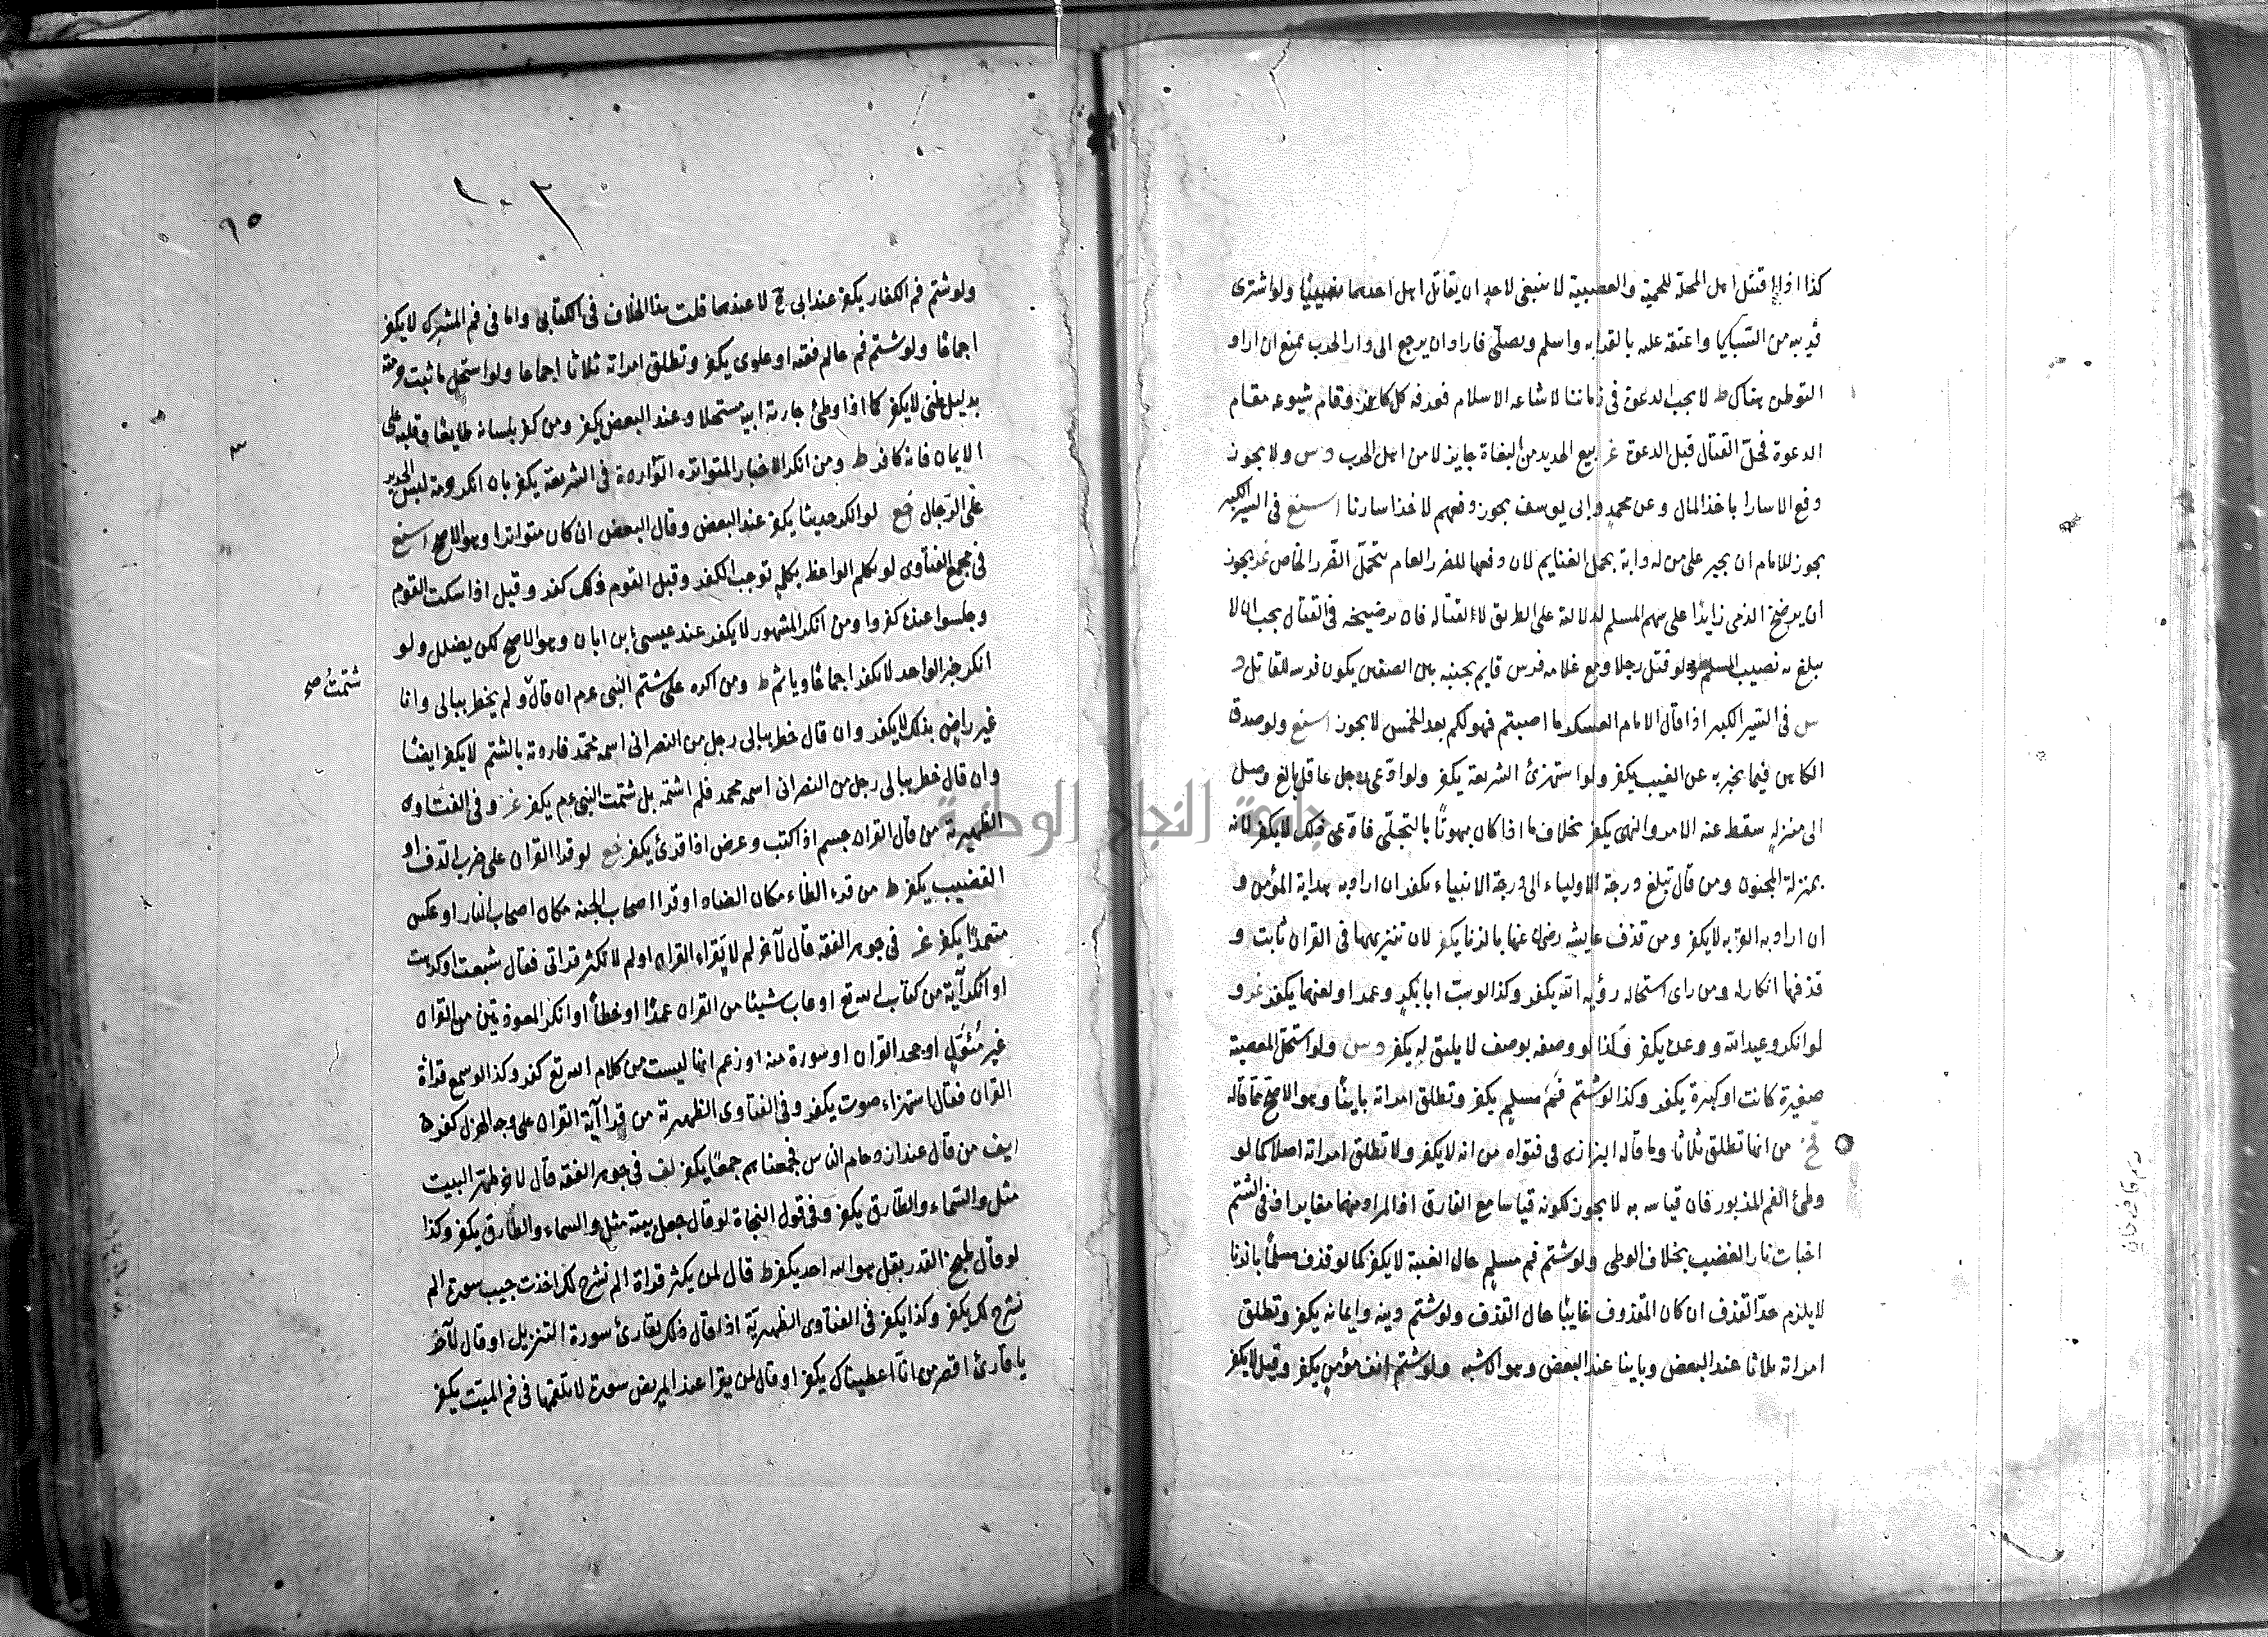 كذا اذا اقتتل اهل المحلة للحمية والعصبية لا ينبغى لاحد ان يقاتل اهل احدهما ولو اشترى
قريبه من السبايا واعتقه عليه بالقرابه واسلم وصلى فاراد ان يرجع الى دار الحرب يمنع ان اراد
التوطن هناك ط لا يجب الدعوة فى زماننا لاشاعه الاسلام فعرفه كل كافر وقام شيوعه مقام
الدعوة فحل القتال قبل الدعوة غر بيع الحديد من البغاة جايز لا من اهل الحرب د س ولا يجوز
دفع الاسارا باخذ المال وعن محمد وابى يوسف يجوز دفعهم لاخذ اسارنا فى السير الكبير
يجوز للامام ان يجبر على من له دابة بحمل الغنايم لان دفعها للضرر العام يتحمل الضرر الخاص غر يجوز
ان يرضخ الذمى زايدا على سهم المسلم لدلالة على الطريق لا القتال فان يرضخه فى القتال يجب ان لا
يبلغ به نصيب المسلم ولو قتل رجلا ومع غلامه فرس قايم بجنبه بين الصفين يكون فرسه للقاتل د
س فى السير الكبير اذا قال الامام العسكر ما اصبتم فهو لكم بعد الخمس لا يجوز ولو صدق
الكاهن فيما يخبر به عن الغيب يكفر ولو استهزئ الشريعة يكفر ولو ادعى رجل عاقل بالغ وصل
الى منزله سقط عنه الامر والنهى يكفر بخلاف ما اذا كان مبهوتا بالتجلى فادعى ذلك لا يكفر لانه
بمنزلة المجنون ومن قال تبلغ درجة الاولياء الى درجة الانبياء يكفر ان اراد به هداية المؤمن و
ان اراد به القربه لا يكفر ومن قذف عايشه رضى عنها بالزنا يكفر لان تنزيهها فى القران ثابت و
قذفها انكار له ومن راى استحاله رؤيه الله يكفر وكذا لو سب ابا بكر وعمر او لعنهما يكفر غر و
لو انكر وعيد الله ووعده يكفر وكذا لو وصفه بوصف لا يليق له يكفر د س ولو استحل المعصية
صغيرة كانت او كبيرة يكفر وكذا لو شتم فم مسلم يكفر وتطلق امراته باينا وهو الاصح مما قاله
من انها تطلق ثلاثا وما قاله البزازى فى فتواه من انه لا يكفر ولا تطلق امراته اصلا كما لو
وطئ الفم المذبور فان قياسه به لا يجوز لكونه قياسا مع الفارق اذ المراد منهما مغاير اذ فى الشتم
اخبات نار الغضب بخلاف الوطى ولو شتم فم مسلم حال الغيبة لا يكفر كما لو قذف مسلما بالزنا
لا يلزم حد القذف ان كان المقذوف غايبا حال القذف ولو شتم دينه وايمانه يكفر وتطلق
امراته ثلاثا عند البعض وباينا عند البعض وهو الاشبه ولو شتم انف مؤمن يكفر وقيل لا يكفر
١٠٢
٦٥
ولو شتم فم الكفار يكفر عند ابى ح لا عندهما قلت هذا الخلاف فى الكتابى واما فى فم المشرك لا يكفر
اجماعا ولو شتم فم عالم فقه او علوى يكفر وتطلق امراته ثلاثا اجماعا ولو استحل ما ثبت حرمته
بدليل ظنى لا يكفر كما اذا وطئ جارية ابيه مستحلا وعند البعض يكفر ومن كفر بلسانه طايعا وقلبه على
الايمان فانه كافر ط ومن انكر الاخبار المتواتره الواردة فى الشريعه يكفر بان انكر حرمة لبس الحرير
على الرجال لو انكر حديثا يكفر عند البعض وقال البعض ان كان متواترا وهو الاصح
فى مجمع الفتاوى لو تكلم الواعظ بكلم توجب الكفر وقبل القوم ذلك كفر وقيل اذا سكت القوم
وجلسوا عنده كفروا ومن انكر المشهور لا يكفر عند عيسى ابن ابان وهو الاصح لكن يضلل ولو
انكر خبر الواحد لا يكفر اجماعا وياثم ط ومن اكره على شتم النبى عم ان قال ولم يخطر ببالى وانا
شتمت صح
غير راضٍ بذلك لا يكفر وان قال خطر ببالى رجل من النصرانى اسمه محمد فاردته بالشتم لا يكفر ايضا
وان قال خطر ببالى رجل من النصرانى اسمه محمد فلم اشتمه بل شتمت النبى عم يكفر غر وفى الفتاوى
الظهيرية من قال القران جسم اذا كتب وعرض اذا قرئ يكفر لو قرا القران على ضرب الدف او
القضيب يكفر ط من قرء الظاء مكان الضاد او قرا اصحاب الجنه مكان اصحاب النار او عكس
متعمدا يكفر غر فى جوهر الفقه قال لآخر لم لا يقراء القران او لم لا تكثر قراتى فقال شبعت او كرهت
او انكر آية من كتاب الله تع او عاب شيئا من القران عمدا او خطأ او انكر المعوذتين من القران
غير مؤول او جحد القران او سورة منه او زعم انها ليست من كلام الله تع كفر وكذا لو سمع قراة
القران فقال استهزاء صوت يكفر وفى الفتاوى الظهيرية من قرا آية القران على وجه الهزل كفر
من قال عند ازدحام الناس فجمعناهم جمعا يكفر لف فى جوهر الفقه قال لاخر طهر البيت
مثل والسماء والطارق يكفر وفى قول النجاة لو قال جعل بيته مثل والسماء والطارق يكفر وكذا
لو قال طبخ القدر بقل هو الله احد يكفر ط قال لمن يكثر قراة الم نشرح لك اخذت جيب سورة الم
نشرح لك يكفر وكذا يكفر فى الفتاوى الظهيرية اذا قال ذلك لقارئ سورة التنزيل او قال لآخر
يا قارئ اقصر من انا اعطيناك يكفر او قال لمن يقرا عند المريض سورة لا تلقمها فى فم الميت يكفر
جامعة النجاح الوطنية